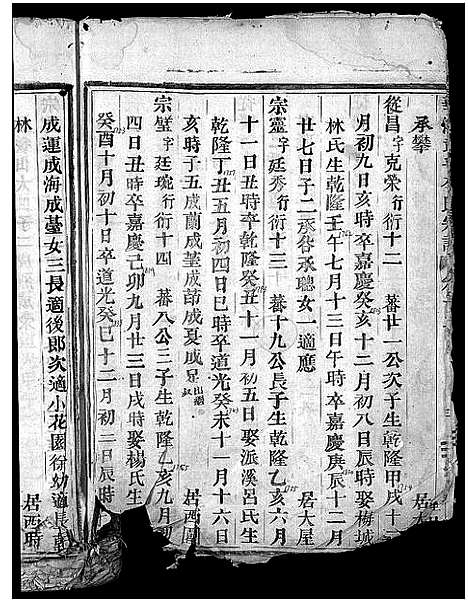 承攀 居
從昌字克榮行衍十二 蕃廿一公次子生乾隆甲戌十
月初九日亥時卒嘉慶癸亥十二月初八日辰時娶梅城
林氏生乾隆壬午七月十三日午時卒嘉慶庚辰十二月
廿七日子二承發承聰女一適應 居大屋
宗靈字廷秀行衍十三 蕃十九公長子生乾隆乙亥六月
十一日丑時卒乾隆癸丑十一月初五日娶派溪呂氏生
乾隆丁丑五月初四日巳時卒道光癸未十一月十六日
亥時子五成蘭成基成節成夏成足出繼 居西
宗璧字廷琬行衍十四 蕃八公三子生乾隆乙亥九月初
四日丑時卒嘉慶己卯九月廿三日戌時娶楊氏生
癸酉十月初十日卒道光癸巳十二月初二日辰時
成蓮成海成臺女三長適後郎次適小花園徐幼適長
林 居西時